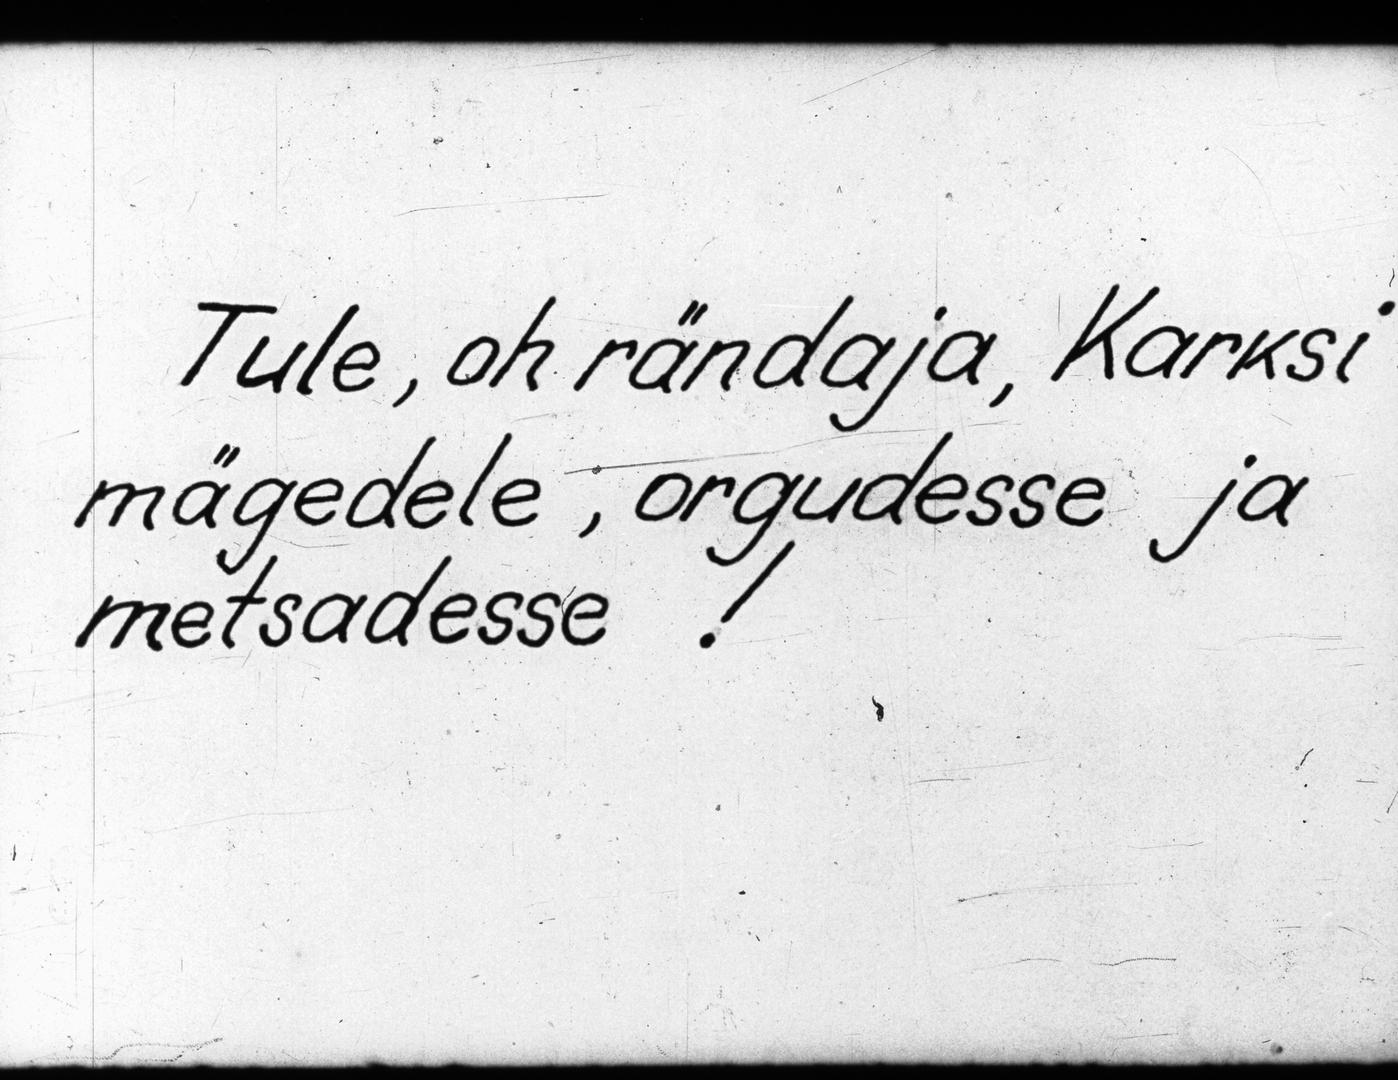 Tule, oh rändaja, Karksi
mägedele, orgudesse ja
metsadesse!